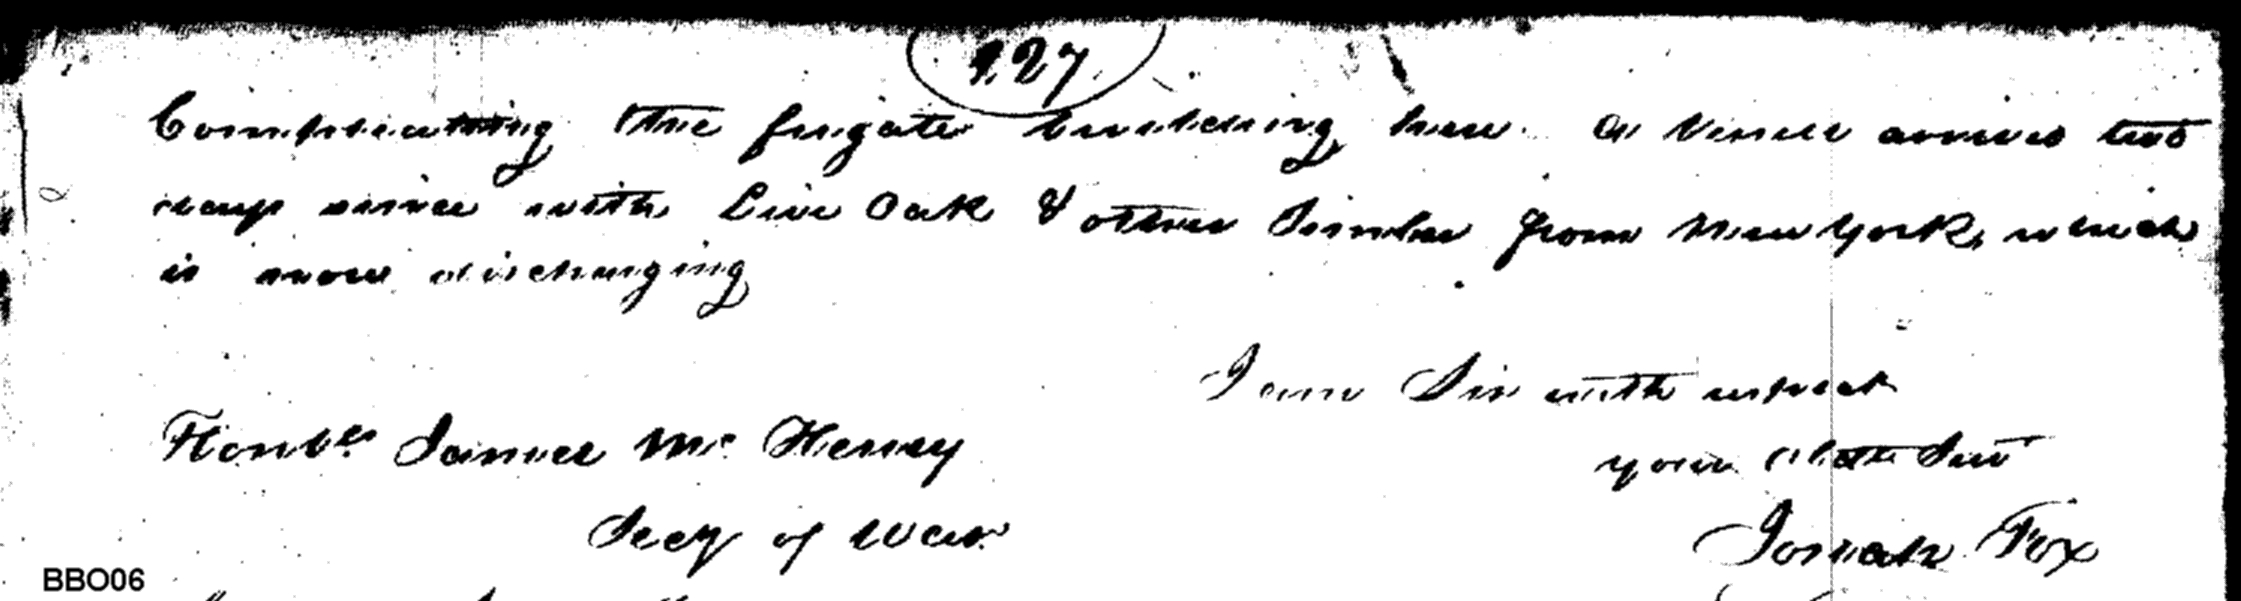 127
Compleating the frigate building here. A Vessel arrived two
days since with Live Oak & other Timber from New York, which
is now discharging
I am Sir with respect
Honble James McHenry
your Obdt Servt
Secy of War
Josiah Fox
BBO06